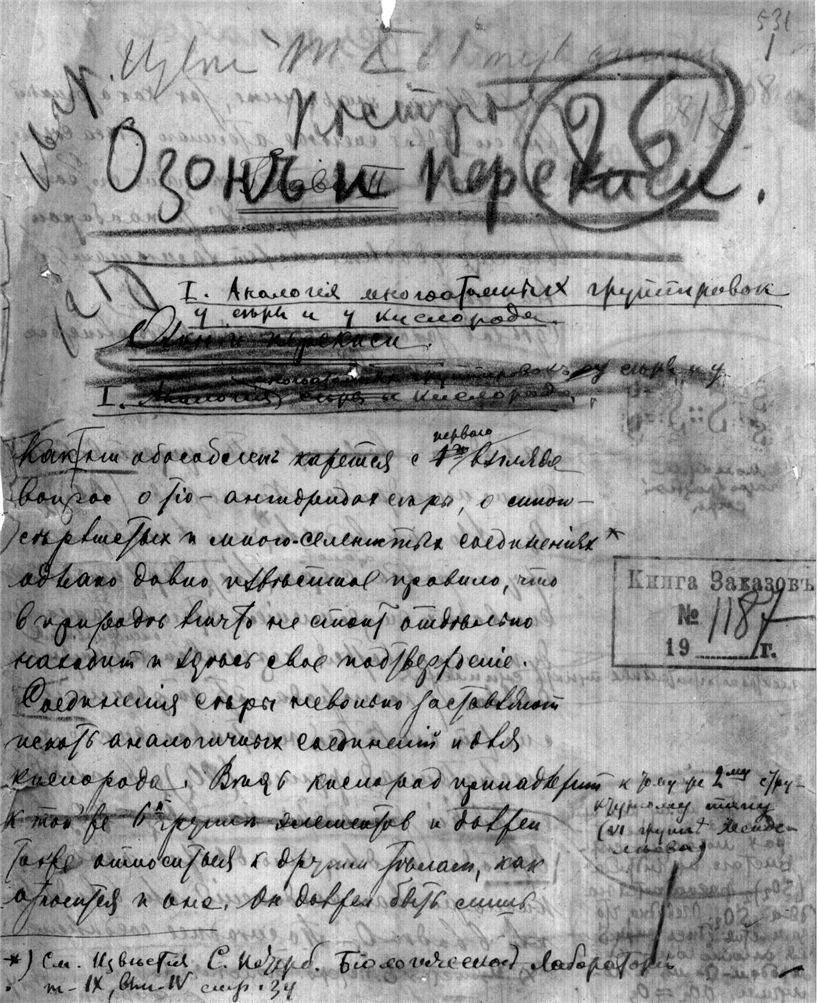 531
1
Озонъ и перекиси.
26
I. Аналогія многоатомныхъ группировок
у сѣры и у кислорода.
Озон и перекиси.
многоатомныхъ группировокъ у сѣры и у
I. Аналогія сѣры и кислорода.
Как ни обособленъ кажется с перваго взгляда
вопрос о тіо-ангидридах сѣры, о много-
сѣрнистых и много-селенистых соединеніях *
однако давно извѣстное правило, что
в природѣ ничто не стоит отдѣльно
находит и здѣсь свое подтвержденіе.
Соединенія сѣры невольно заставляют
искать аналогичных соединеній и для
кислорода. Вѣдь кислород принадлежит к тому же 2му стру-
ктурному типу
(VI группа Менде-
лѣева)
к той же 6й группѣ элементов и должен
также относиться к другим тѣлам, как
относится и она. Он должен быть лишь
Книга Заказовъ
№ 1187
19 г.
*) См. Извѣстія С. Петерб. Біологической Лабораторіи
т-IX, вып-IV стр. 34